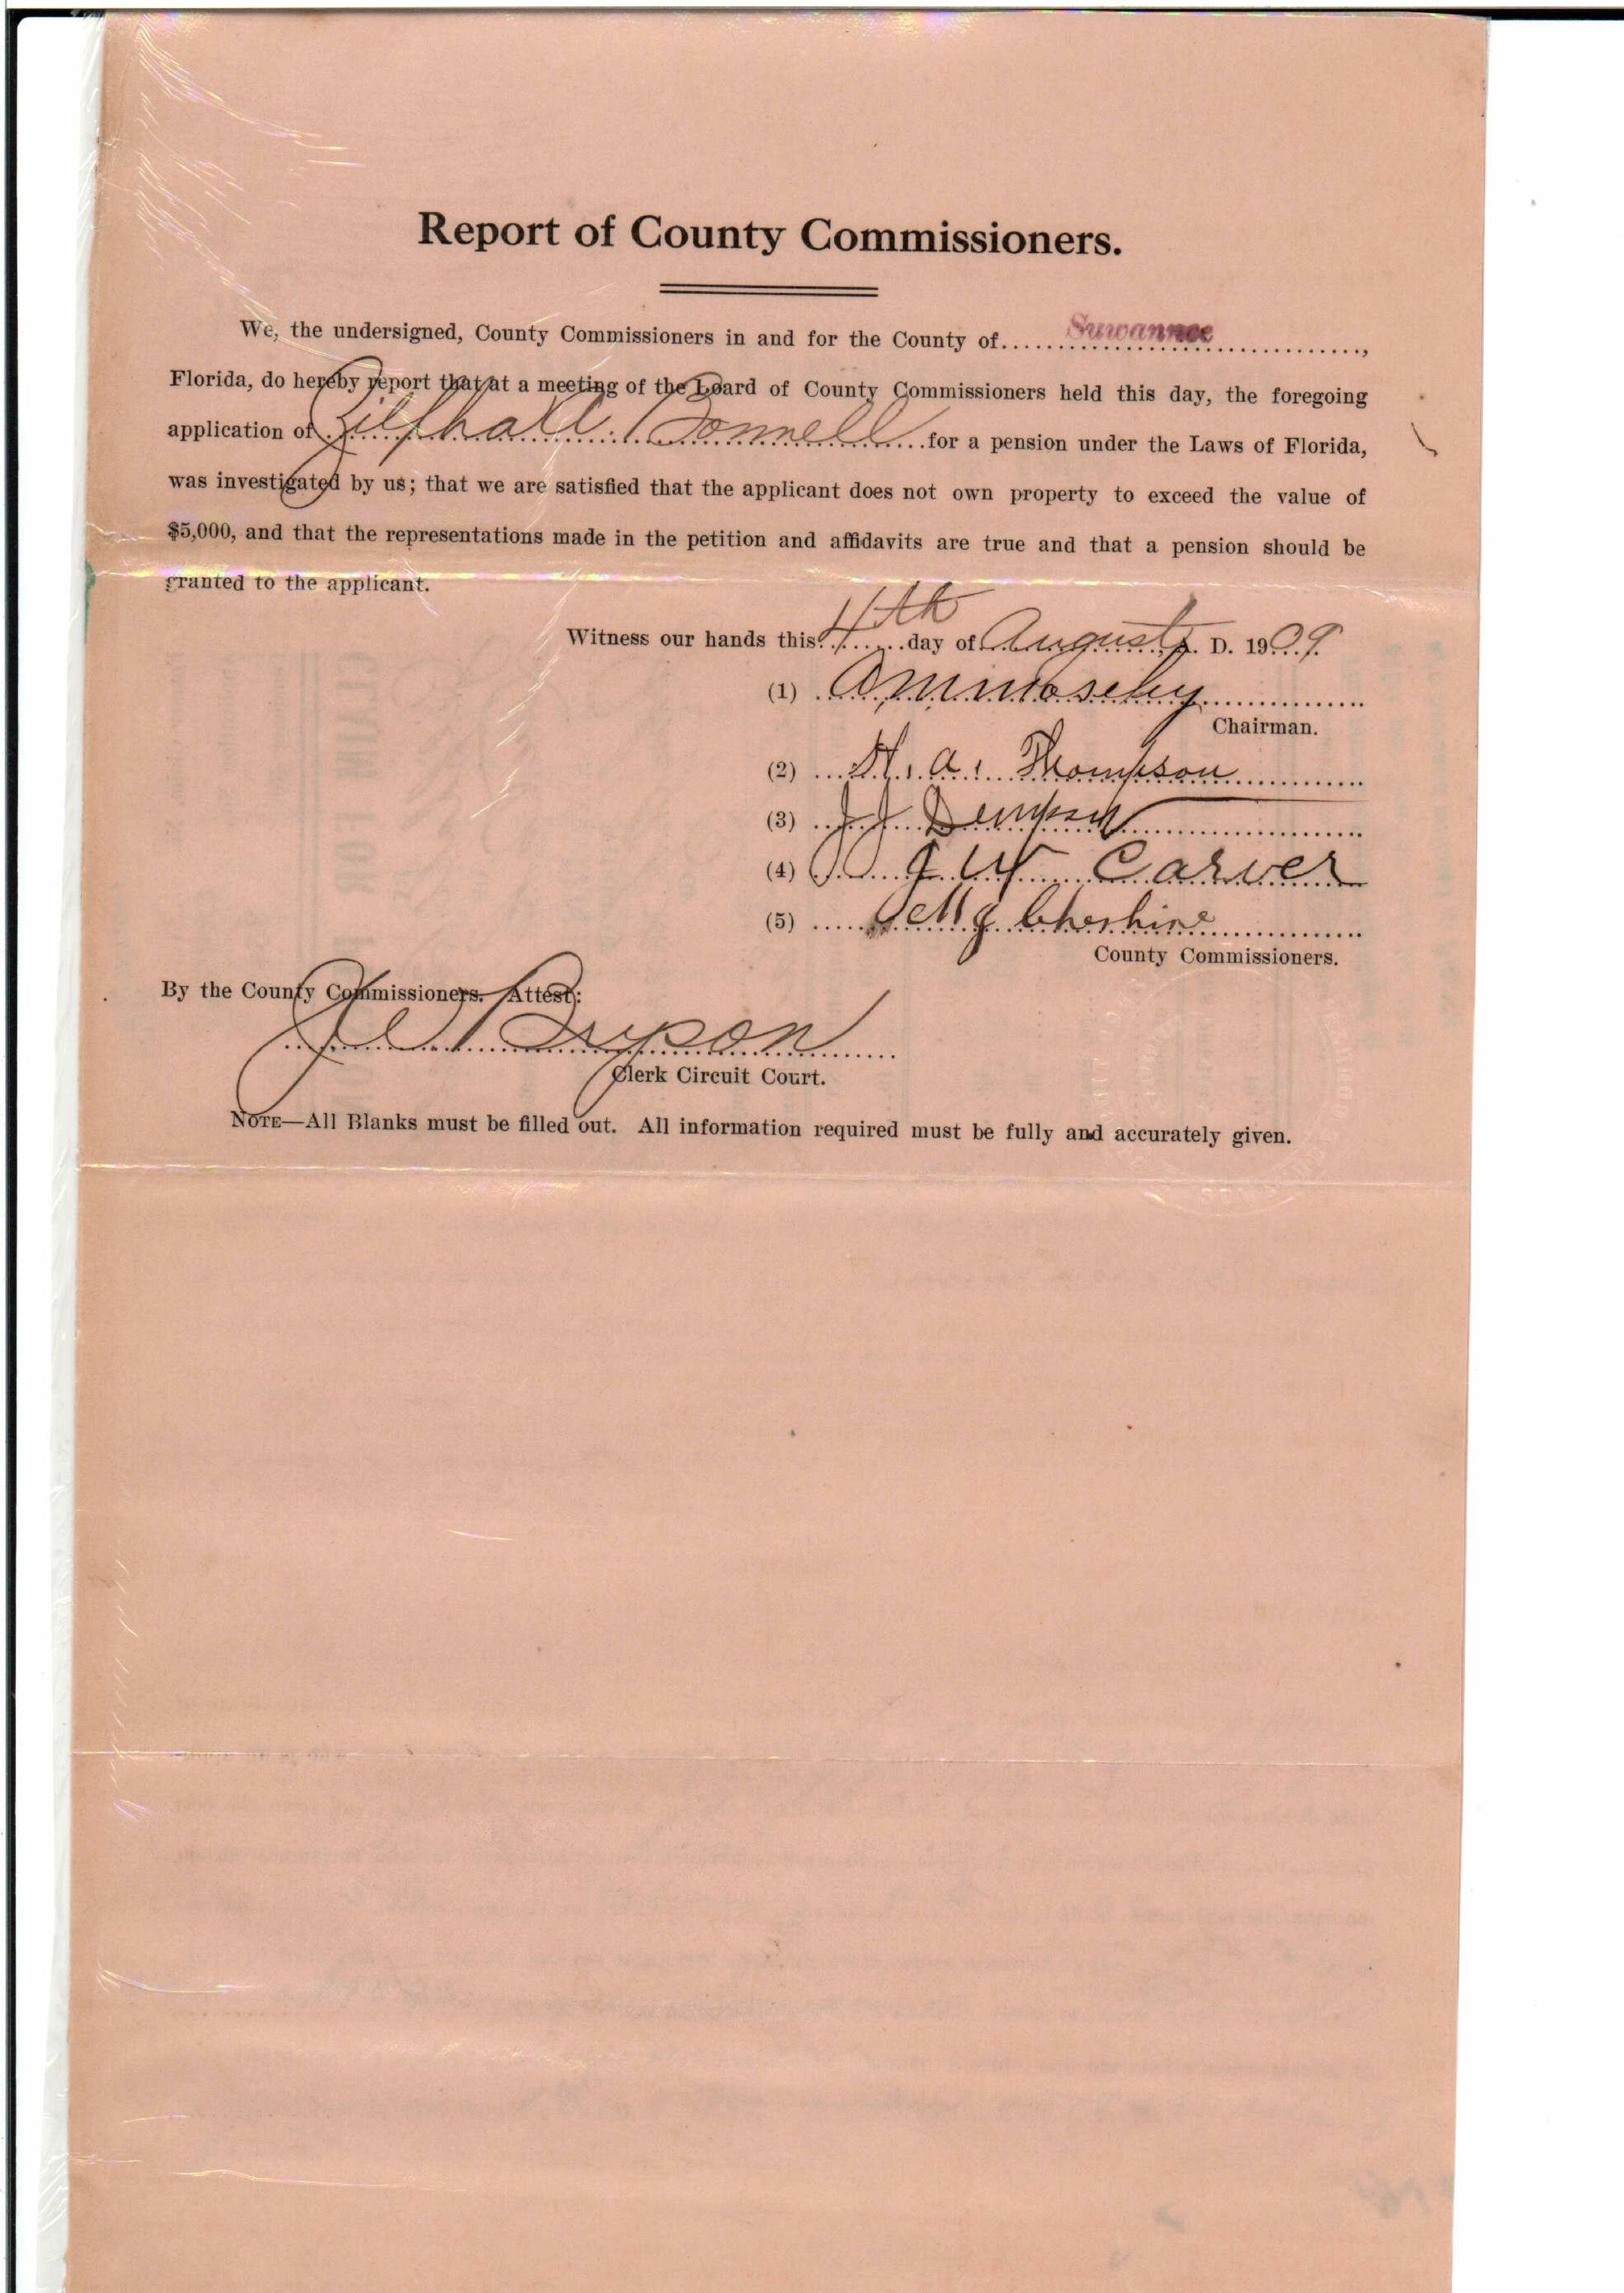 Report of County Commissioners.
We, the undersigned, County Commissioners in and for the County of Suwannee,
Florida, do hereby report that at a meeting of the Board of County Commissioners held this day, the foregoing
application of Bonnell for a pension under the Laws of Florida,
was investigated by us; that we are satisfied that the applicant does not own property to exceed the value of
$5,000, and that the representations made in the petition and affidavits are true and that a pension should be
granted to the applicant.
Witness our hands this 4th day of August A. D. 1909.
(1) A M Moseley
Chairman.
(2) H. A. Thompson
(3) J J Dempsey
(4) J W Carver
(5) M J Cheshire
County Commissioners.
By the County Commissioners. Attest:
Bryson
Clerk Circuit Court.
NOTE—All Blanks must be filled out. All information required must be fully and accurately given.